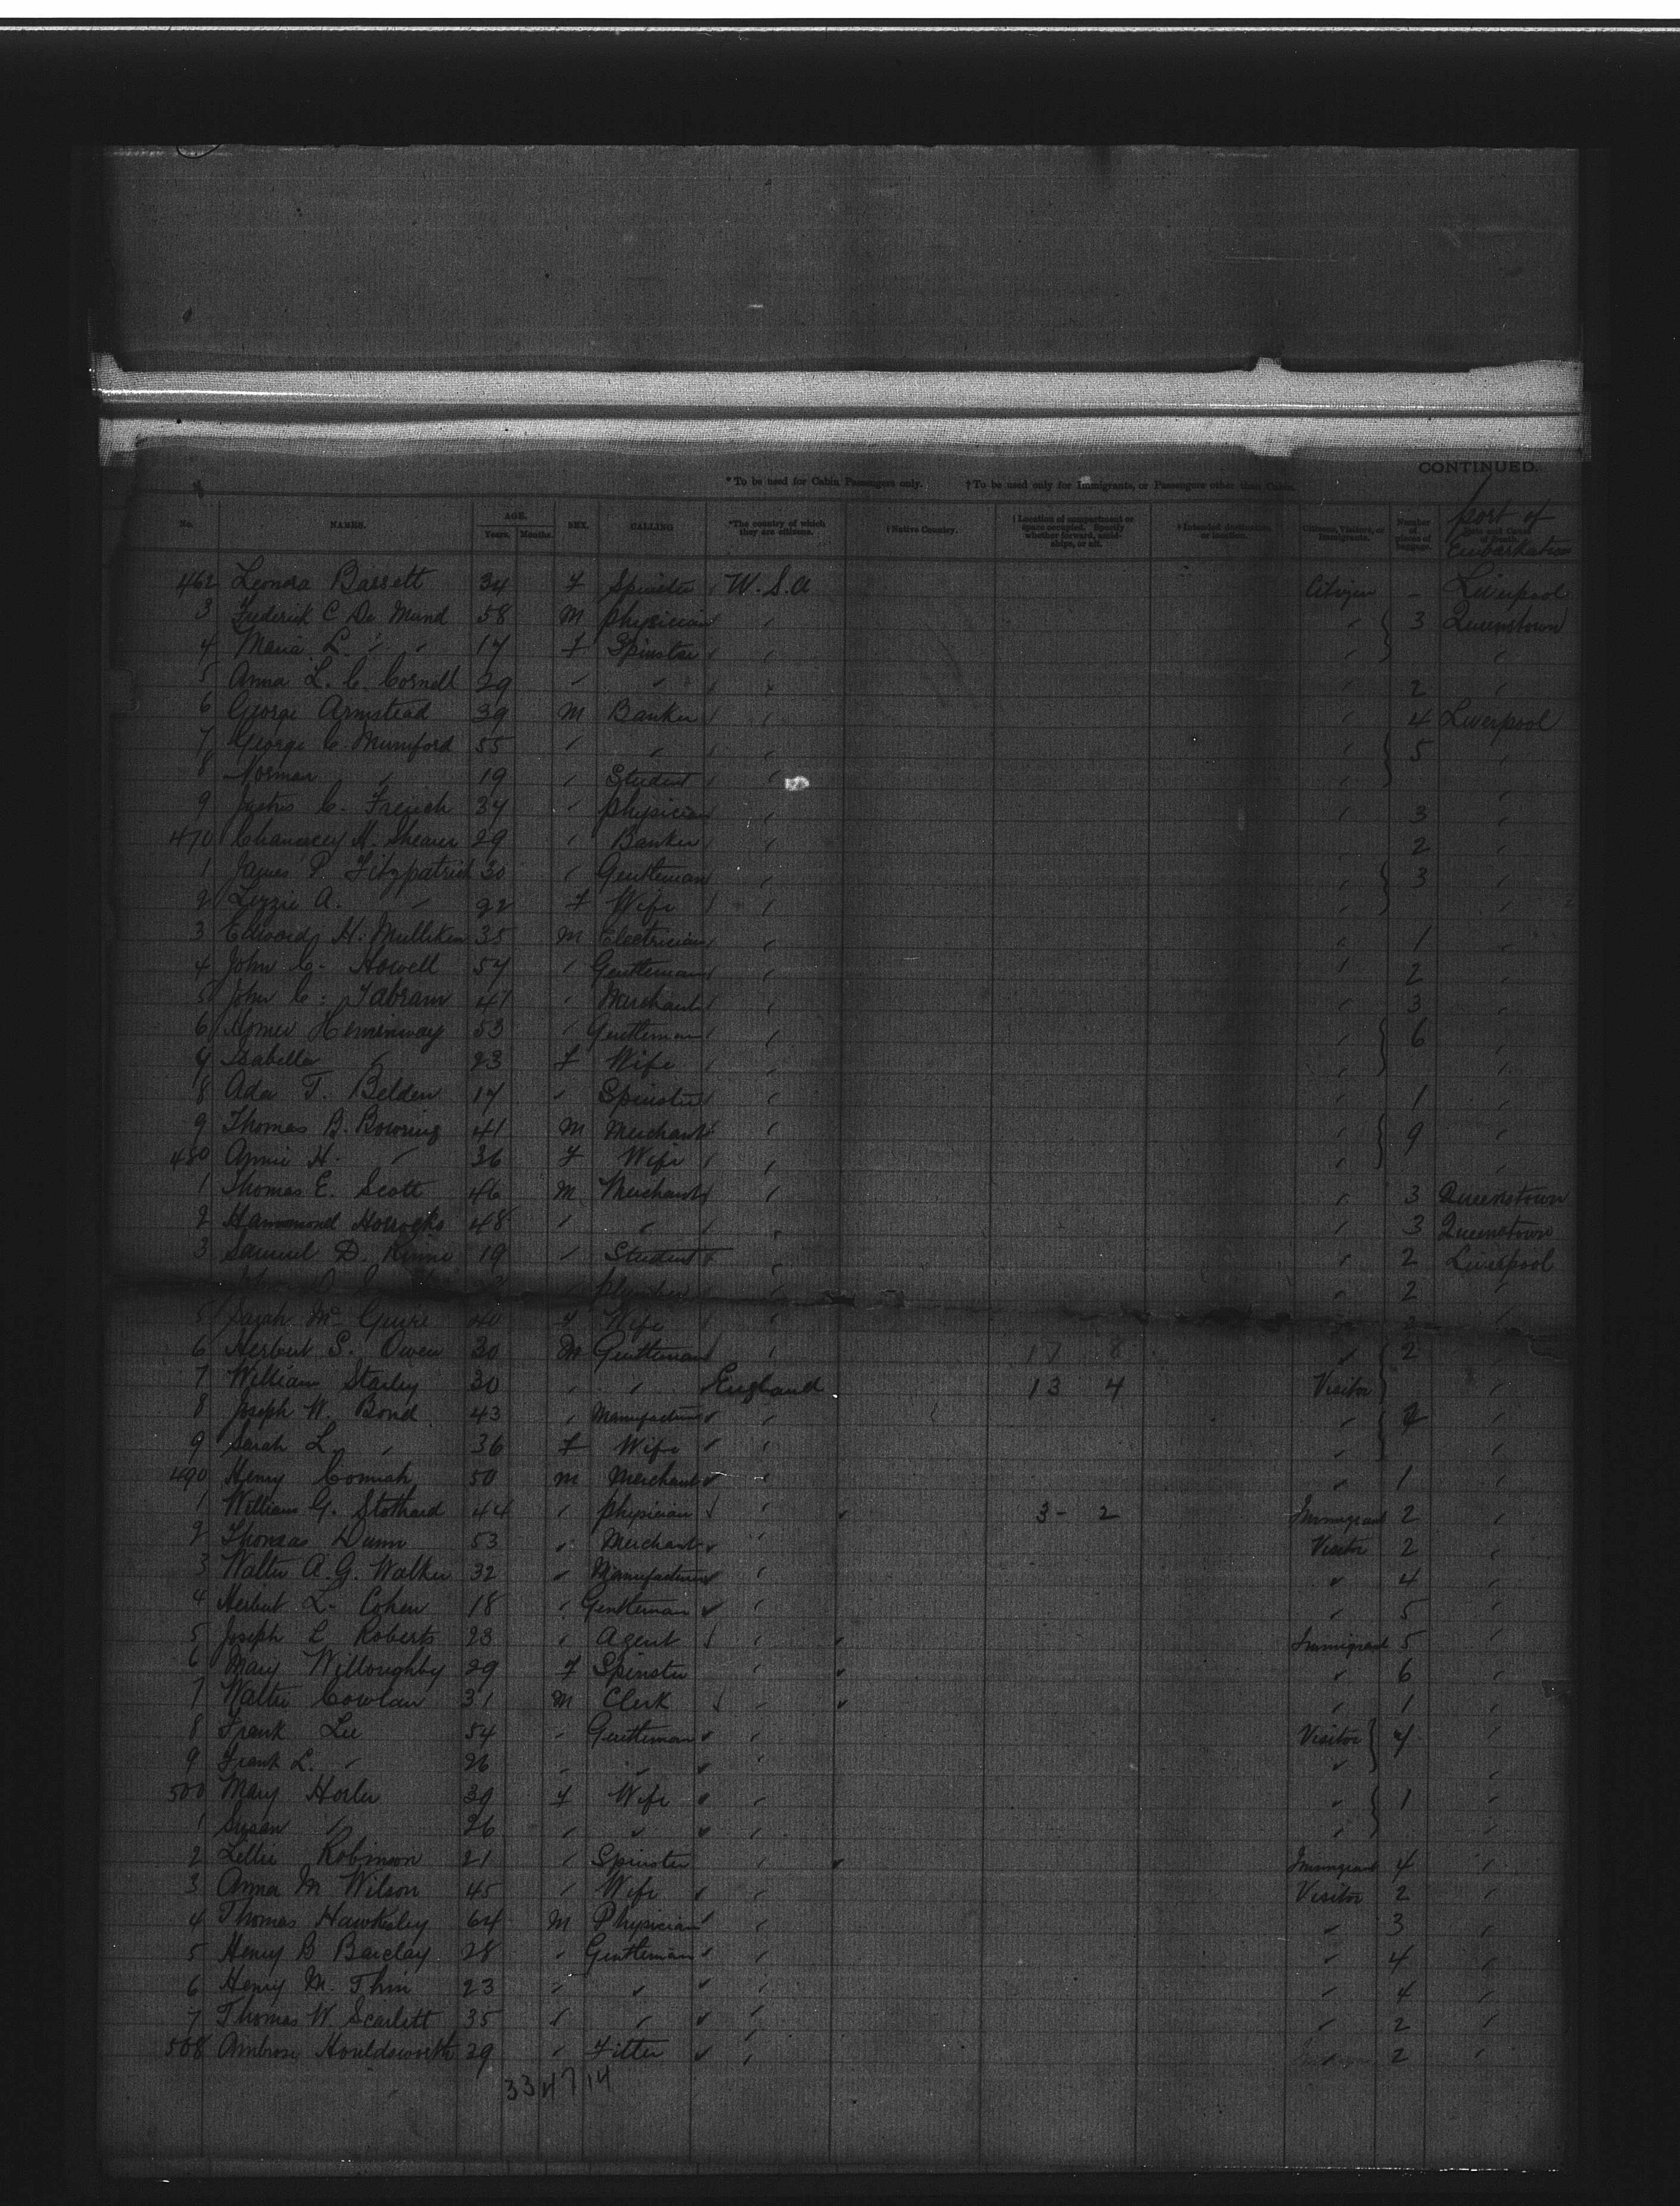 CONTINUED.
* To be used for Cabin Passengers only. † To be used only for Immigrants, or Passengers other than Cabin.
No. NAMES. AGE. Years. Months. SEX. CALLING *The country of which they are citizens. † Native Country. † Location of compartment or space occupied. Specify whether forward, amidships, or aft. Intended destination or location. Citizens, Visitors, or Immigrants. Number of pieces of baggage. Port of Embarkation
462 Leonora Bassett 34 F Spinster U.S.A Citizen - Liverpool
3 Frederick C De Mund 58 M Physician " " 3 Queenstown
4 Maria L. " " 17 F Spinster " " "
5 Anna L. C. Cornell 29 " " " " 2 "
6 George Armstead 39 M Banker " " 4 Liverpool
7 George C. Mumford 55 " " " " 5 "
8 Norman " 19 " Student " " "
9 C. French 34 " Physician " " 3 "
470 Chauncey H. Shearer 29 " Banker " " 2 "
1 James P. Fitzpatrick 30 " Gentleman " " 3 "
2 Lizzie A. " 22 F Wife " " "
3 Edward H. Milliken 35 M Electrician " " 1 "
4 John C. Howell 54 " Gentleman " " 2 "
5 John C. Tabram 41 " Merchant " " 3 "
6 Homer Heminway 53 " Gentleman " " 6 "
7 Isabella " 23 F Wife " " "
8 Ada T. Belden 17 " Spinster " " 1 "
9 Thomas B. Bowring 41 M Merchant " " 9 "
480 Annie H. " 36 F Wife " " "
1 Thomas E. Scott 46 M Merchant " " 3 Queenstown
2 Hammond Horrocks 48 " " " " 3 Queenstown
3 Samuel D. Kinne 19 " Student " " 2 Liverpool
" " " 2 "
5 Sarah Mc Guire 40 F Wife " "
6 Herbert S. Owen 30 M Gentleman " 17 8 " 2 "
7 William Starley 30 " " England 13 4 Visitor "
8 Joseph W. Bond 43 " Manufacturer " " 2 "
9 Sarah L. " 36 F Wife " " "
490 Henry Cornish 50 M Merchant " " 1 "
1 William G. Stothard 44 " Physician " 3 - 2 Immigrant 2 "
2 Thomas Dunn 53 " Merchant " Visitor 2 "
3 Walter A. G. Walker 32 " Manufacturer " " 4 "
4 Herbert L. Cohen 18 " Gentleman " " 5 "
5 Joseph L Roberts 28 " Agent " Immigrant 5 "
6 Mary Willoughby 29 F Spinster " " 6 "
7 Walter Cowlan 31 M Clerk " " 1 "
8 Frank Lee 54 " Gentleman " Visitor 4 "
9 Frank L. " 26 " " " " "
500 Mary Horler 39 F Wife " " 1 "
1 Susan " 26 " " " " "
2 Lillie Robinson 21 " Spinster " Immigrant 4 "
3 Anna M Wilson 45 " Wife " Visitor 2 "
4 Thomas Hawksley 64 M Physician " " 3 "
5 Henry B Barclay 28 " Gentleman " " 4 "
6 Henry M. Thin 23 " " " " 4 "
7 Thomas W Scarlett 35 " " " " 2 "
508 Ambrose Houldsworth 29 " Fitter " " 2 "
33 47 14